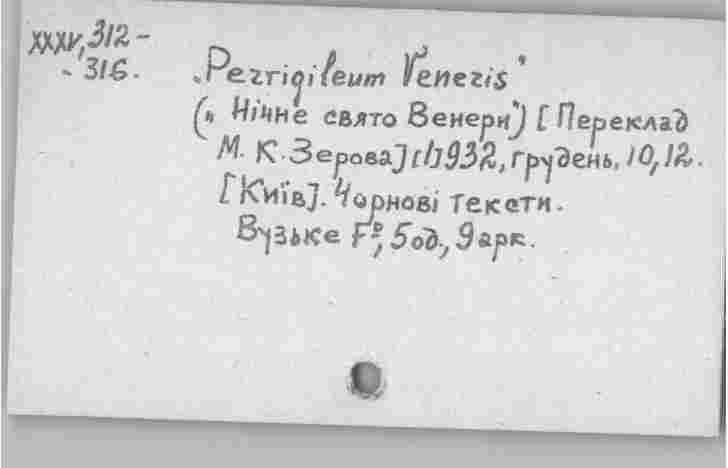 XXXV, 312 -
- 316.
„Perrigileum Veneris"
(„Нічне свято Венери") [Переклад
М. К. Зерова] [1]932, грудень, 10, 12.
[Київ]. Чорнові тексти.
Вузьке Fº, 5 од., 9 арк.